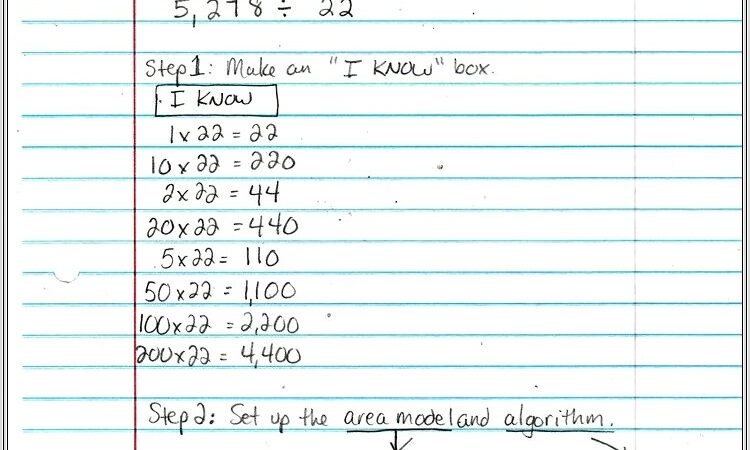 5,278 ÷ 22
Step 1: Make an "I KNOW" box.
I KNOW
1 x 22 = 22
10 x 22 = 220
2 x 22 = 44
20 x 22 = 440
5 x 22 = 110
50 x 22 = 1,100
100 x 22 = 2,200
200 x 22 = 4,400
Step 2: Set up the area model and algorithm.